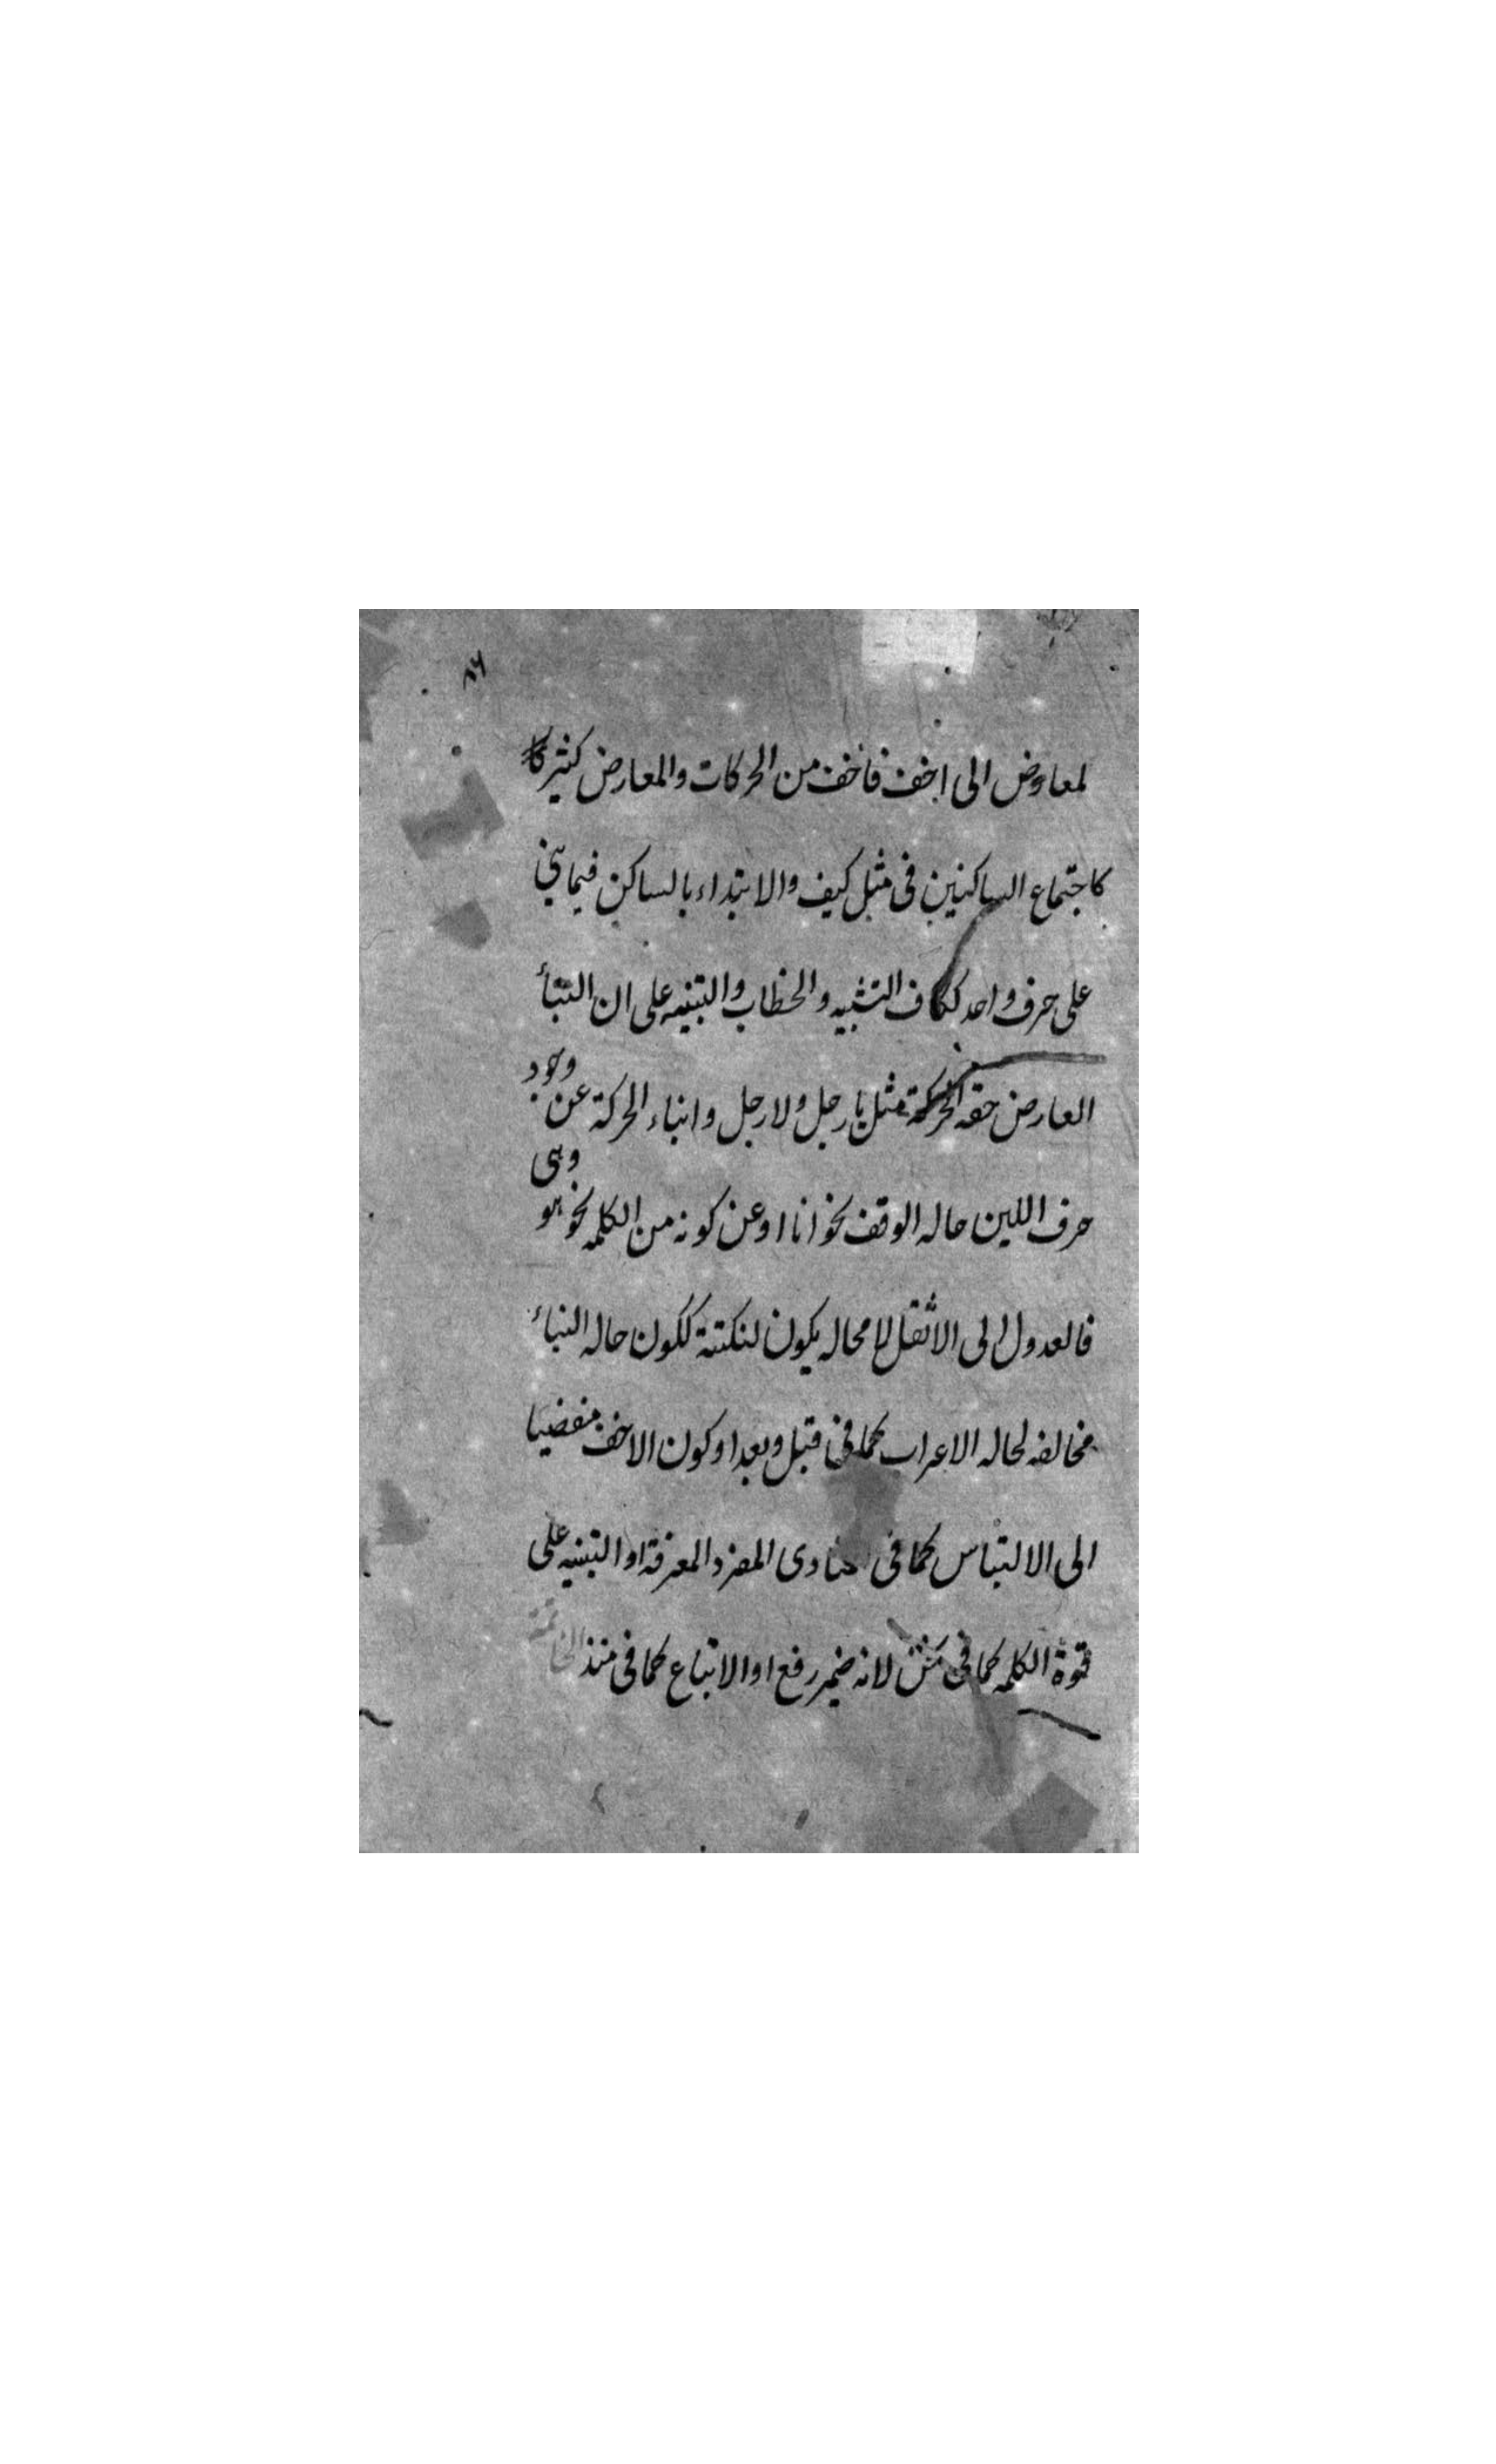 ٨٦
لمعاوض الى اخف فاخف من الحركات والمعارض كثير
كاجتماع الساكنين فى مثل كيف والابتداء بالساكن فيما بنى
على حرف واحد ككاف التشبيه والخطاب والتبنيه على ان البناء
العارض حقه الحركة مثل يا رجل ولا رجل وانباء الحركة عن وجود
حرف اللين حاله الوقف نحو انا او عن كونه من الكلمه نحو هو وهى
فالعدول الى الاثقل لا محاله يكون لنكتة ككون حاله البناء
مخالفه لحاله الاعراب كما فى قبل وبعد او كون الاخف مفضيا
الى الالتباس كما فى المنادى المفرد المعرفة او التبنيه على
قوة الكلمه كما فى نحن لانه ضمير رفع او الاتباع كما فى منذ الخاتمة